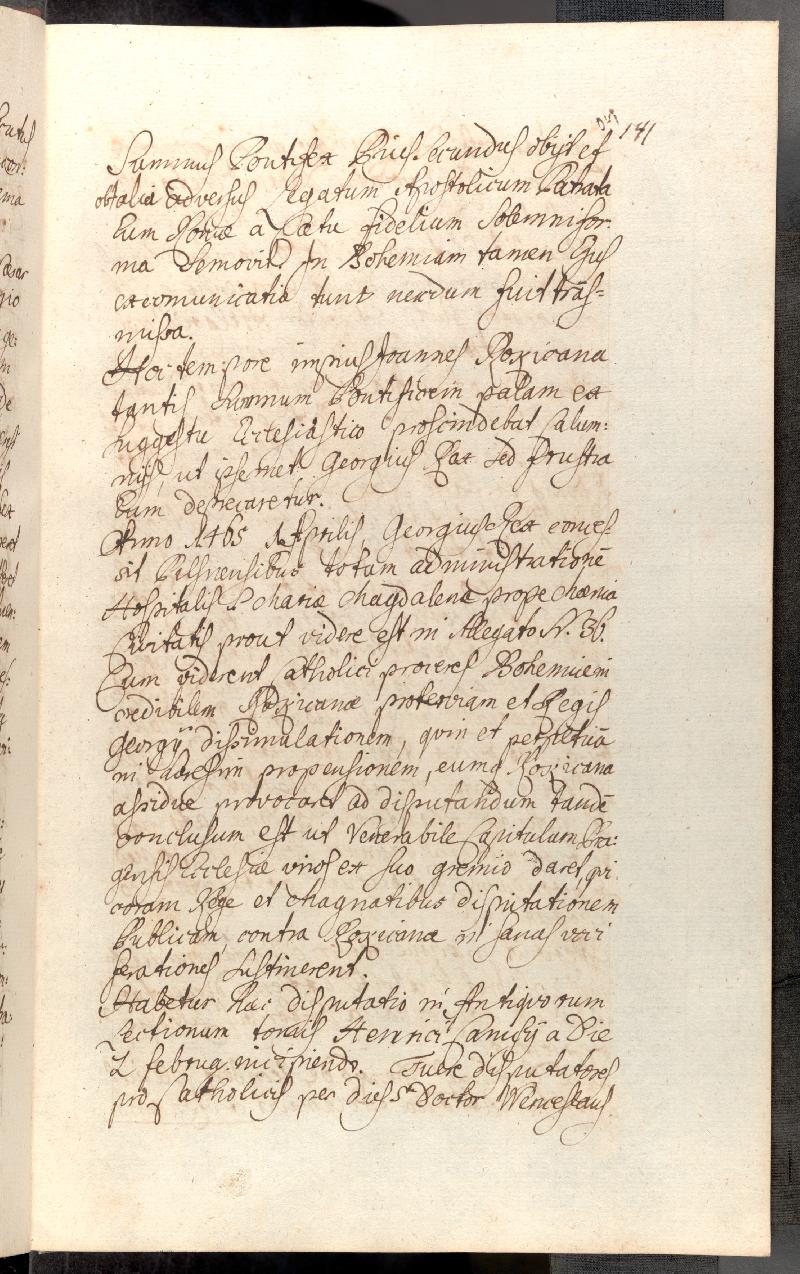 141
Summus Pontifex Pius secundus obijt et
ob talia adversus Legatum Apostolicum Patrata
Eum Romæ a Cætu fidelium Solemni for:
ma Semovit. In Bohemiam tamen Ejus
excomunicatio tunc necdum fuit trās=
missa.
Hoc tempore impius Joannes Rokicana
tantis Summum Pontificem palam ex
suggestu Ecclesiastico proscindebat Calum:
nijs, ut ipsemet Georgius Rex sed frustra
Eum deprecaretur.
Anno 1465 1 Aprilis, Georgius Rex conces
sit Pilsnensibus totam administrationē
Hospitalis S. Mariæ Magdalenæ prope Mænia
Civitatis prout videre est in Allegato N. 36.
Cum viderent Catholici proceres Bohemi in
credibilem Rokicanæ proterviam et Regis
Georgij dissimulationem, quin et perpetuā
in hæresim propensionem, eumq Rokicana
assidue provocaret ad disputandum tandē
conclusum est ut Venerabile Capitulum Pra:
gensis Ecclesiæ viros ex suo gremio daret qui
coram Rege et Magnatibus disputationem
Publicam, contra Rokicanæ insanas voci
ferationes sustinerent.
Habetur hæc disputatio in Antiquarum
Lectionum tomis Henrici Canisij a Die
2 februa. incipiendo. Fuere disputatores
pro Catholicis per dies 5 Doctor Wenceslaus